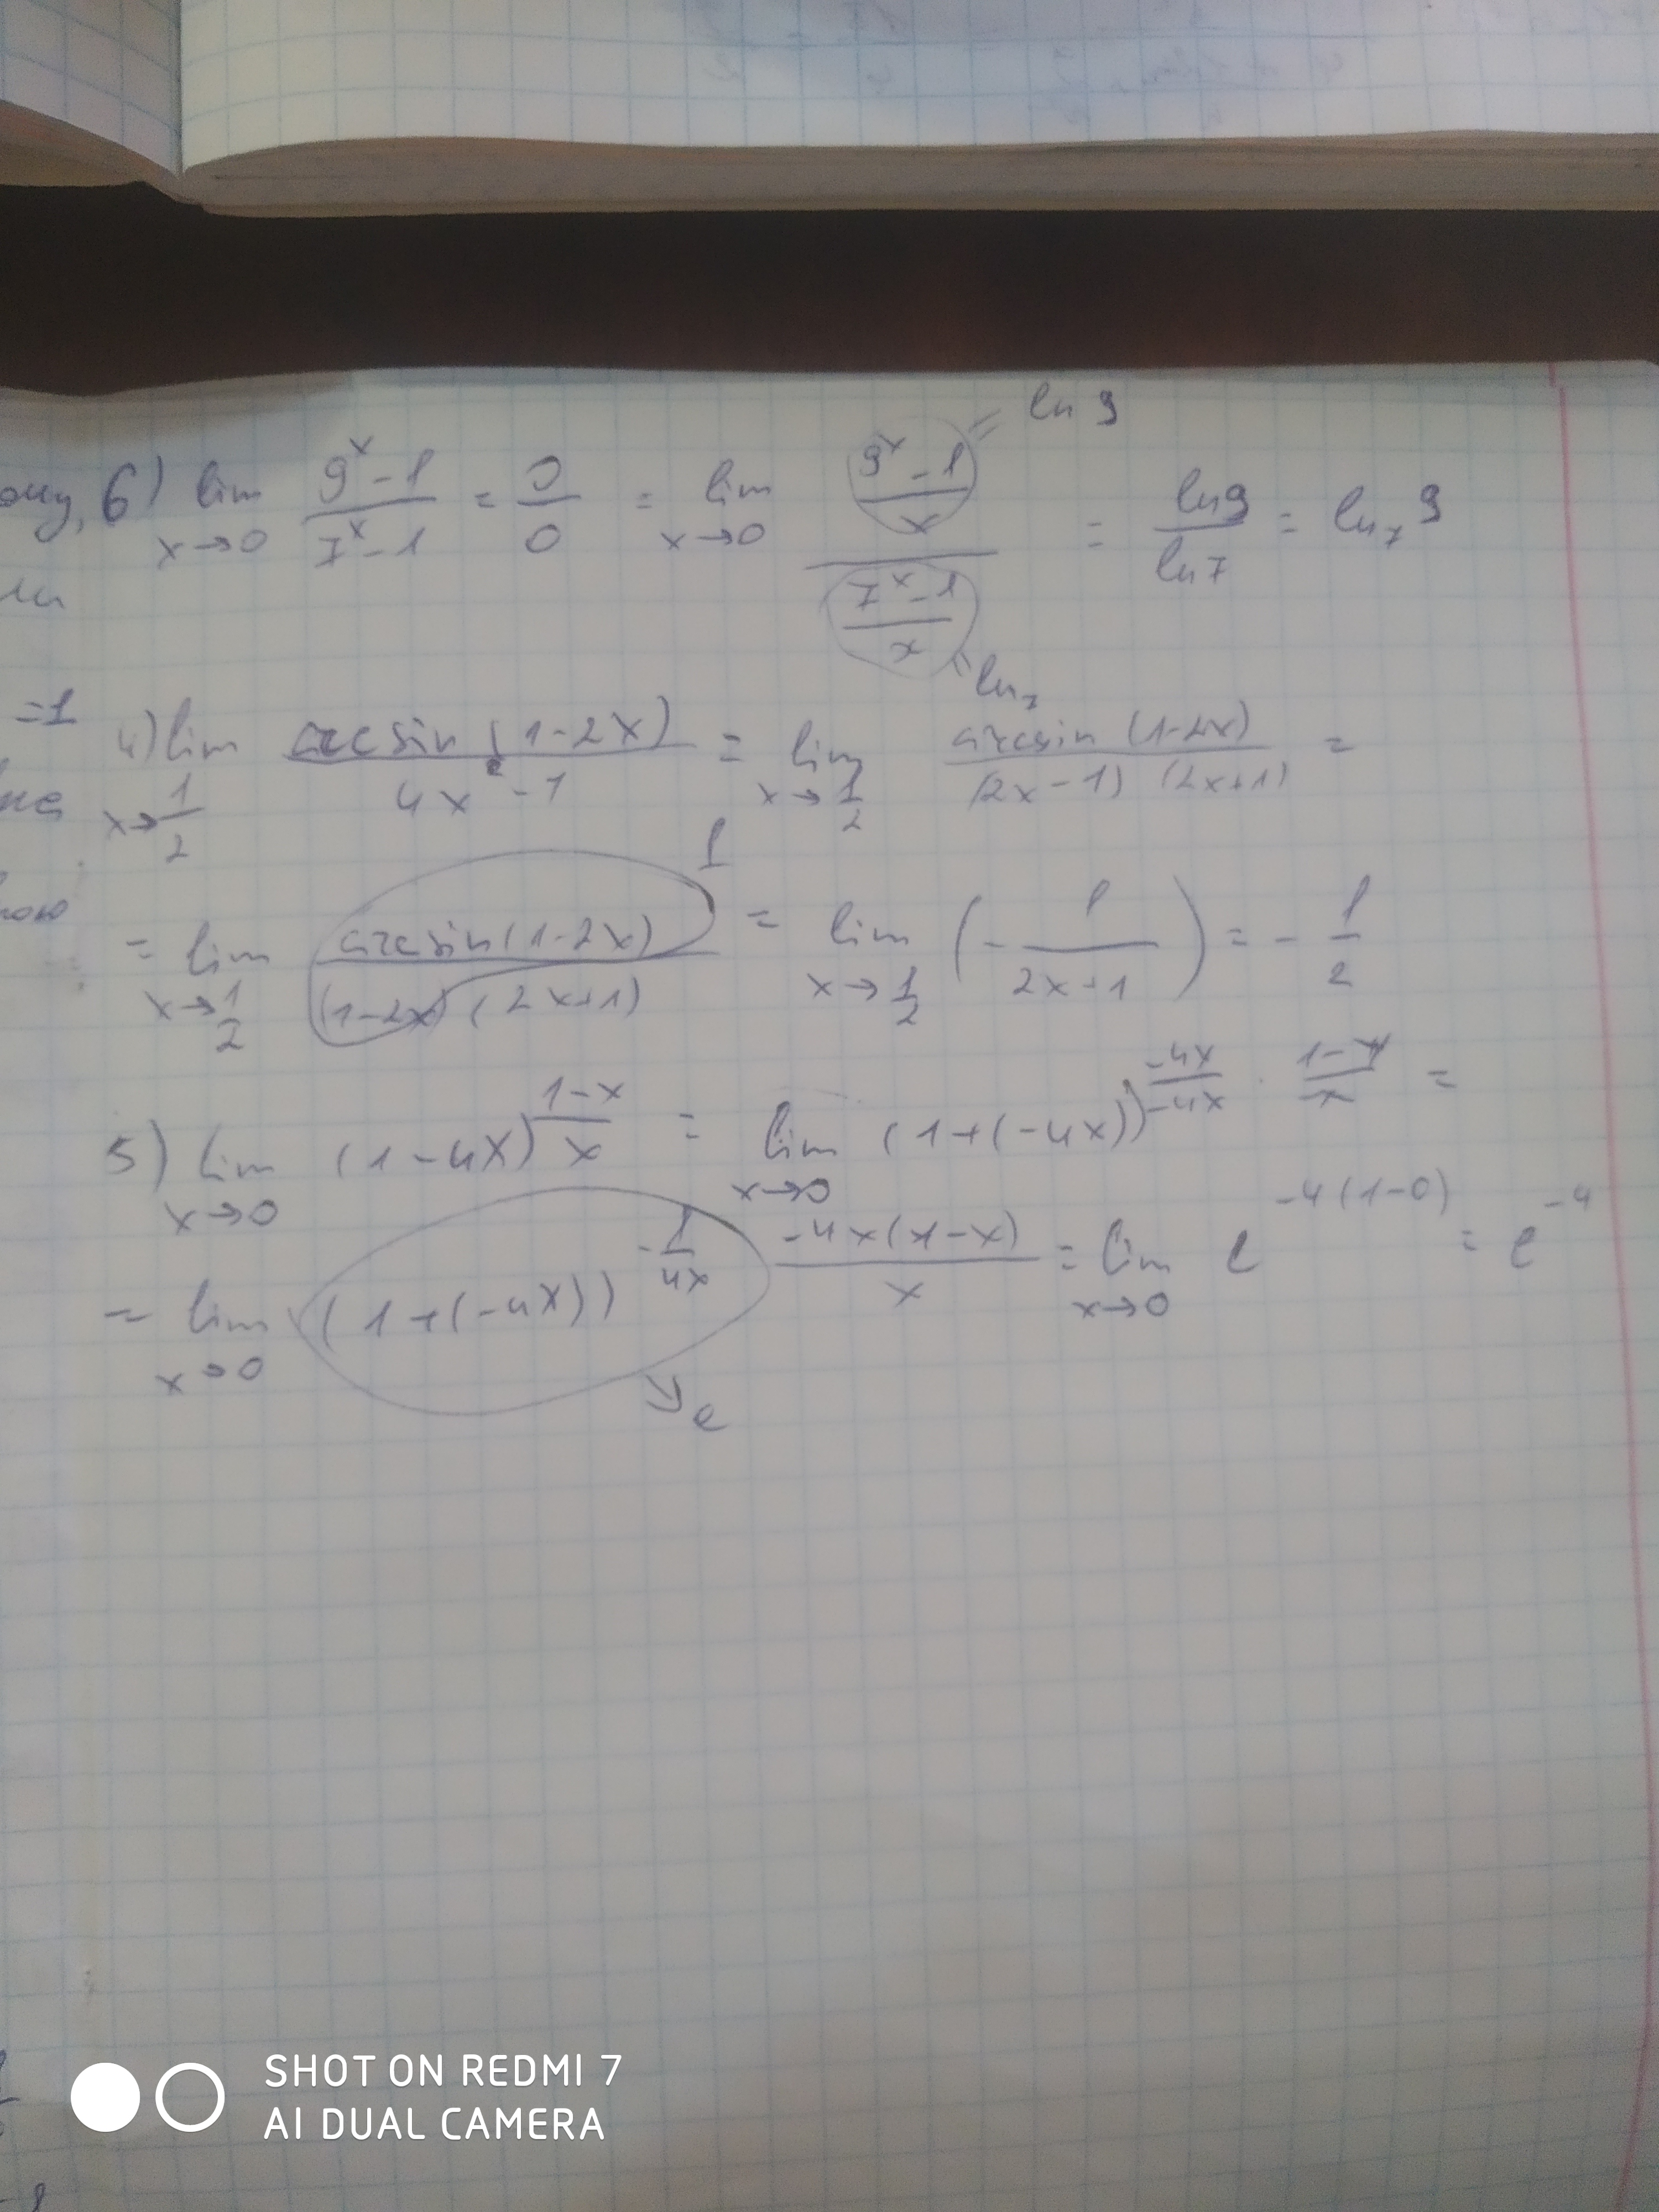 6) lim x→0 (9^x-1)/(7^x-1) = 0/0 = lim x→0 ((9^x-1)/x)/((7^x-1)/x) = ln9/ln7 = ln₇ 9
= ln 9
= ln₇
=1
4) lim x→1/2 arcsin(1-2x)/(4x²-1) = lim x→1/2 arcsin(1-2x)/((2x-1)(2x+1)) =
1
= lim x→1/2 arcsin(1-2x)/((1-2x)(2x+1)) = lim x→1/2 (-1/(2x+1)) = -1/2
5) lim x→0 (1-4x)^((1-x)/x) = lim x→0 (1+(-4x))^((-4x)/(-4x) · (1-x)/x) =
= lim x→0 (1+(-4x))^(-1/4x) (-4x(1-x))/x = lim x→0 e^(-4(1-0)) = e^(-4)
→e
SHOT ON REDMI 7
AI DUAL CAMERA